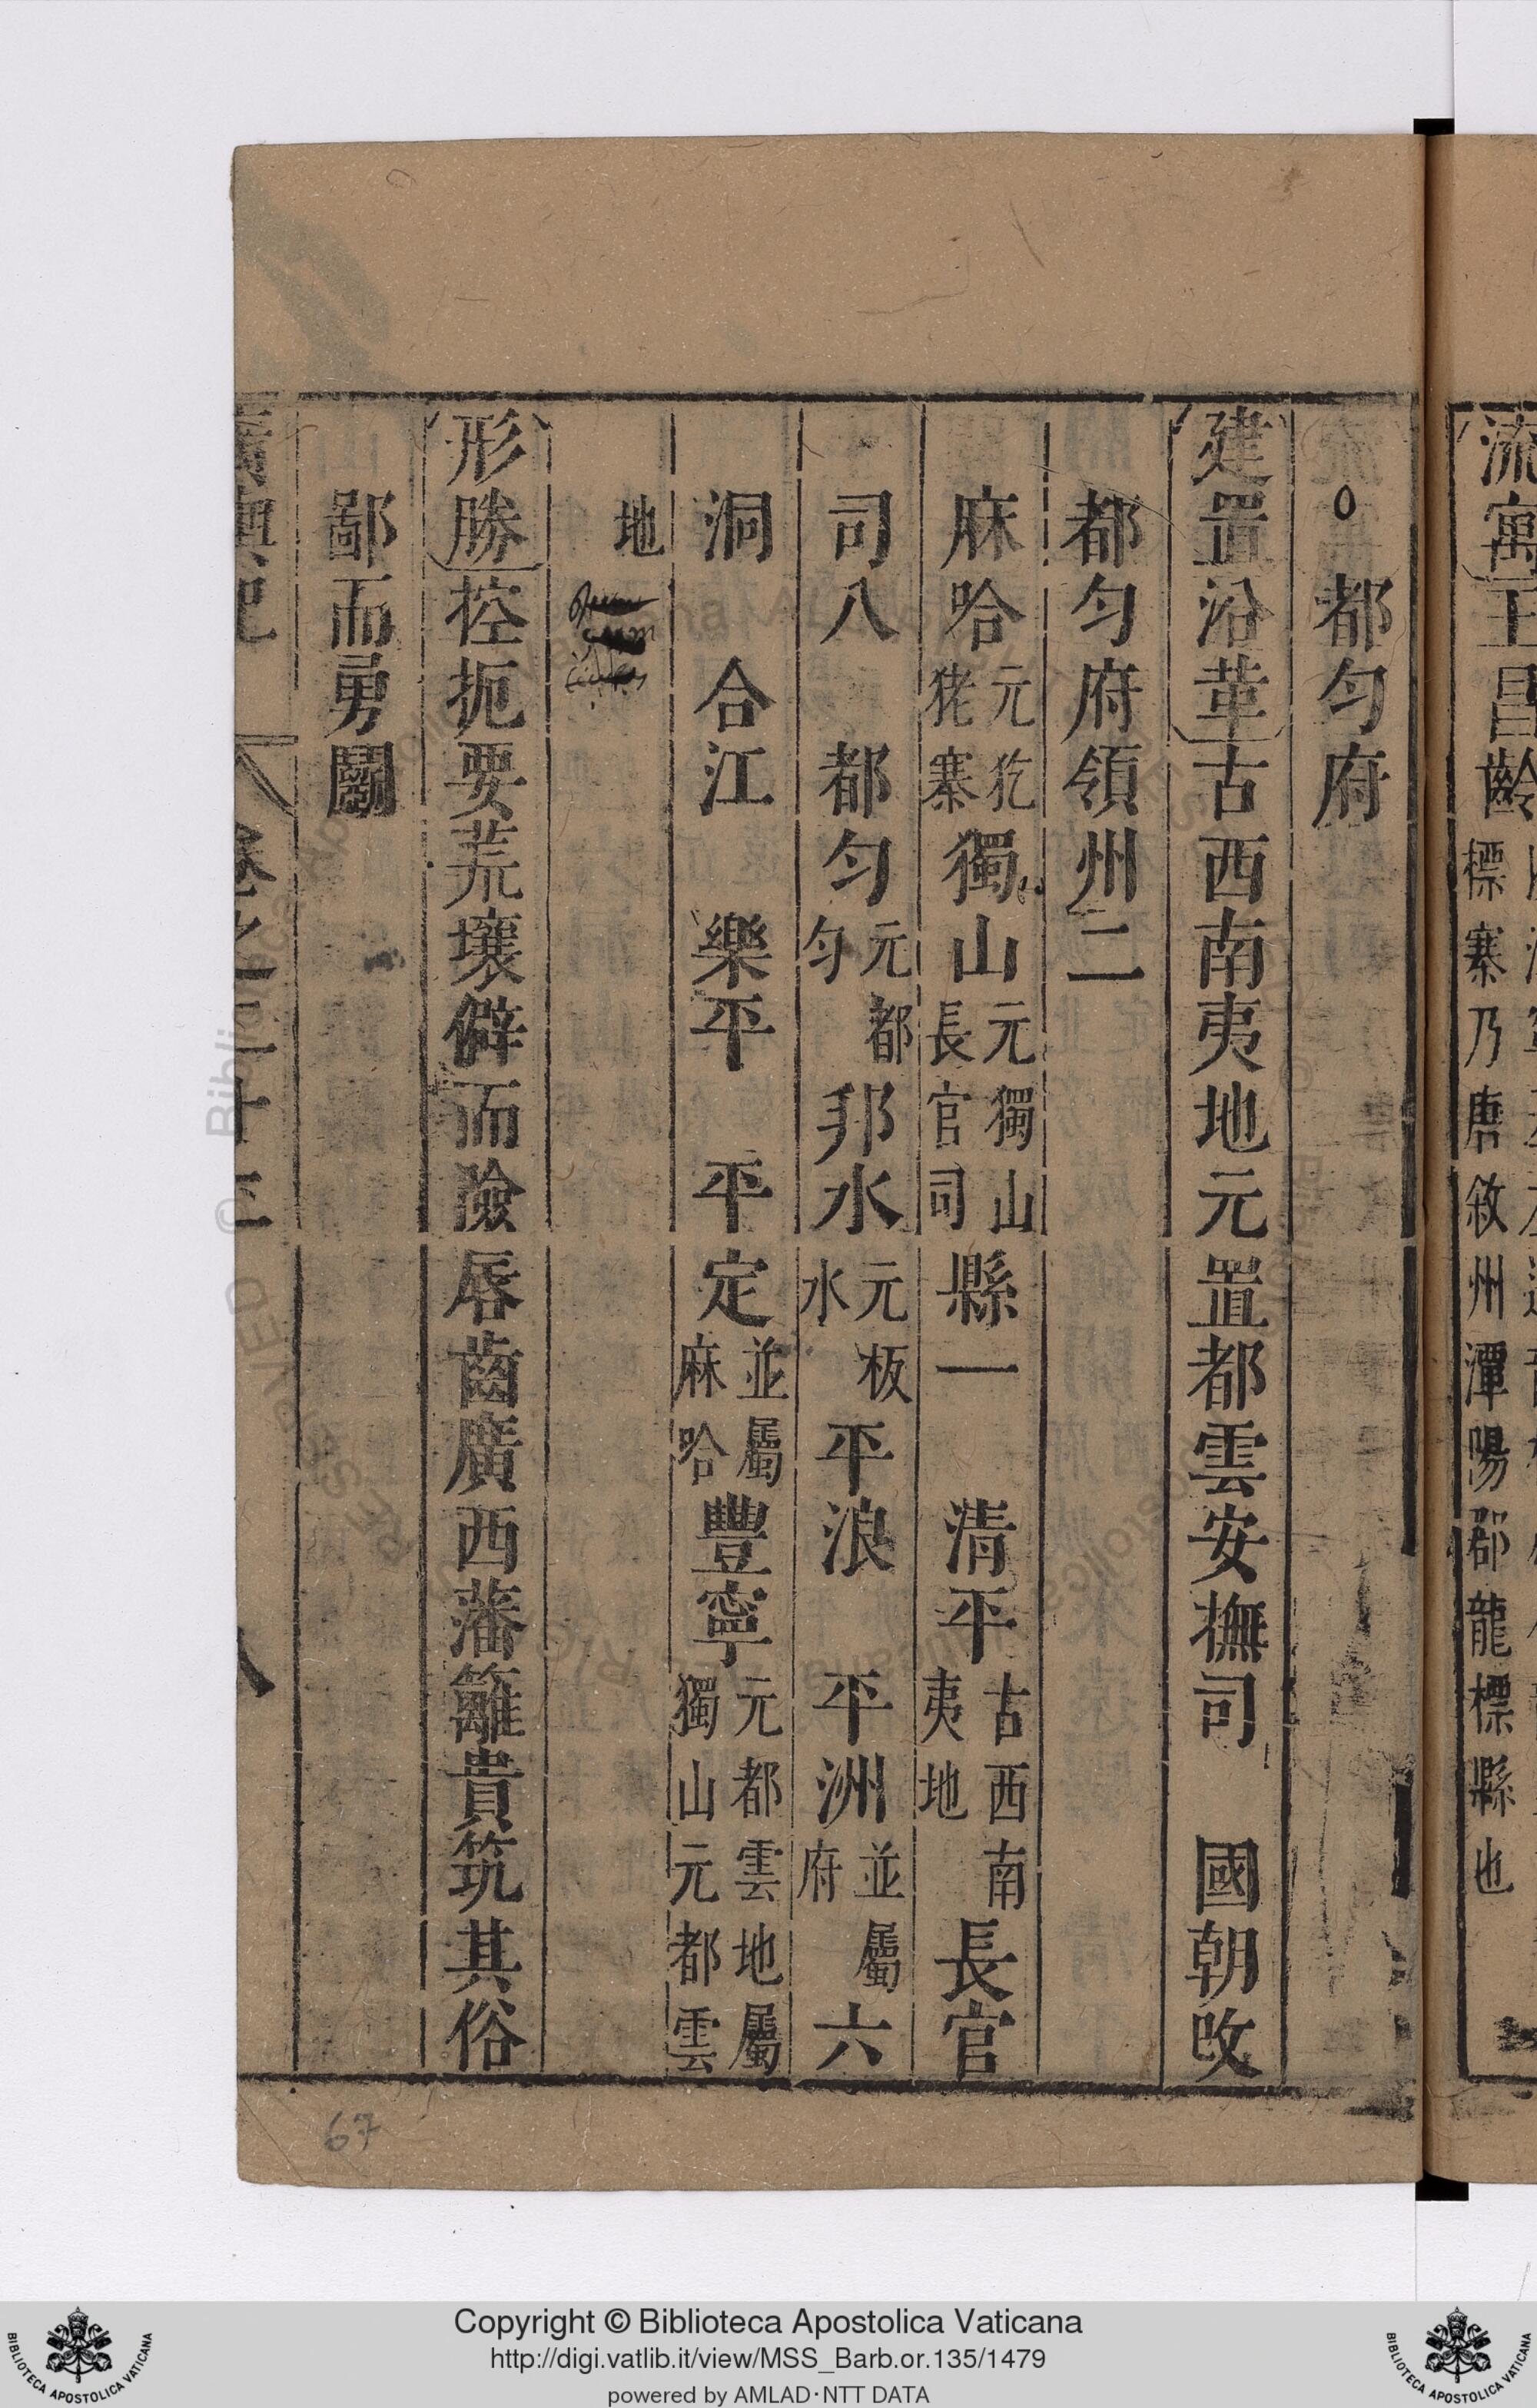 流寓王昌齡
標寨乃唐敘州潭陽郡龍標縣也
都匀府
建置沿革古西南夷地元置都雲安撫司 國朝改
都匀府領州二
麻哈元犵狫寨獨山元獨山長官司縣一 清平古西南夷地長官
司八 都匀元都匀邦水元板水平浪 平洲並屬府六
洞 合江 樂平 平定並屬麻哈豐寧元都雲地屬獨山元都雲
地
形勝控扼要荒壤僻而險唇齒廣西藩籬貴筑其俗
鄙而勇鬭
廣輿記 卷之二十三 八
67
Copyright © Biblioteca Apostolica Vaticana
http://digi.vatlib.it/view/MSS_Barb.or.135/1479
powered by AMLAD·NTT DATA
BIBLIOTECA APOSTOLICA VATICANA
BIBLIOTECA APOSTOLICA VATICANA